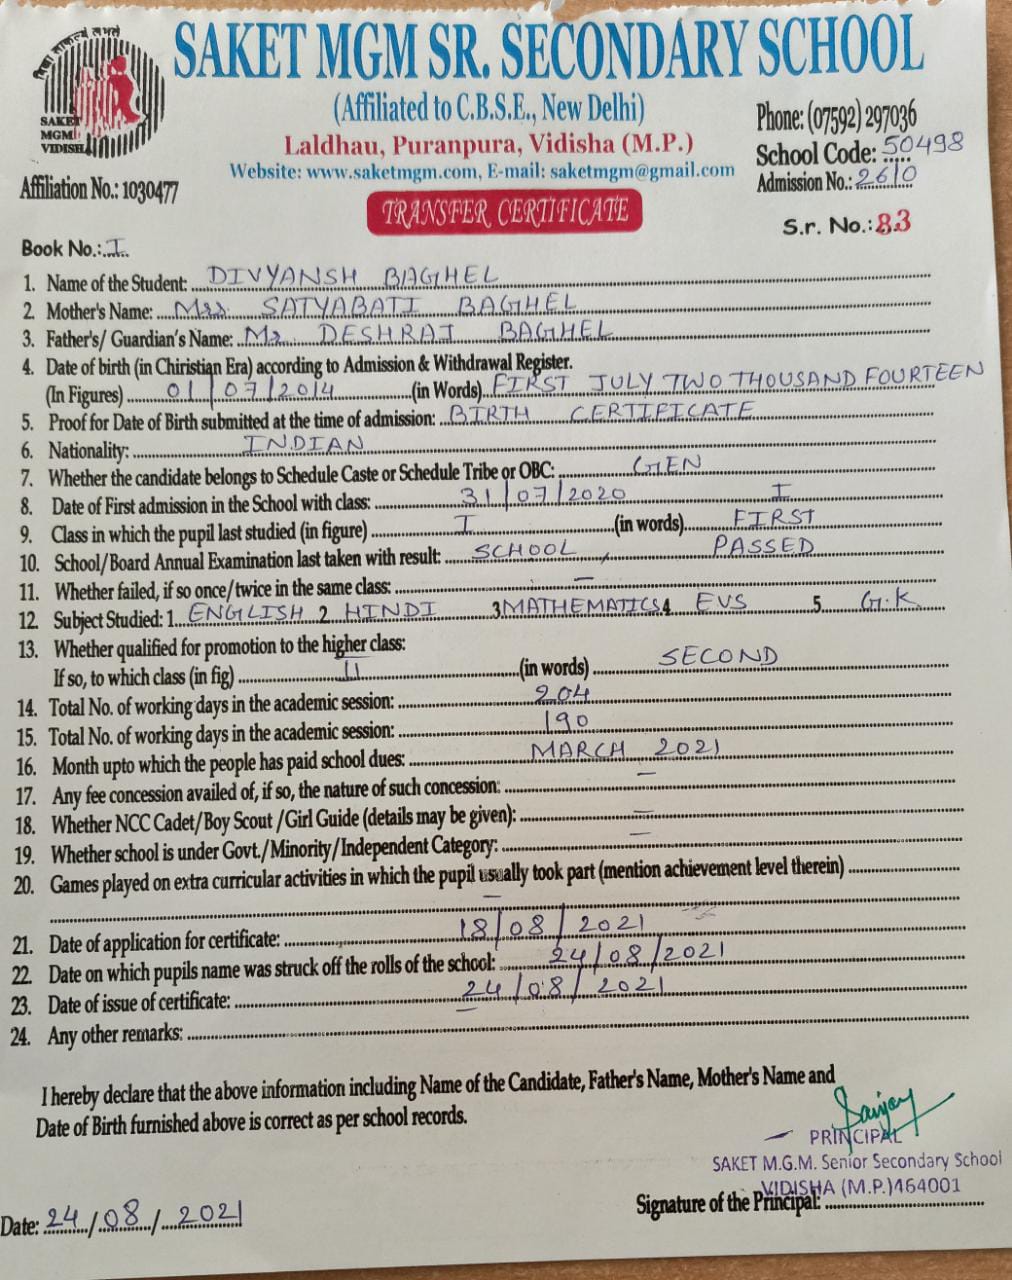 SAKET MGM SR. SECONDARY SCHOOL
(Affiliated to C.B.S.E., New Delhi)
Laldhau, Puranpura, Vidisha (M.P.)
Website: www.saketmgm.com, E-mail: saketmgm@gmail.com
SAKET
MGM
VIDISHA
Affiliation No.: 1030477
Phone: (07592) 297036
School Code: 50498
Admission No.: 2610
TRANSFER CERTIFICATE
S.r. No.: 83
Book No.: I
1. Name of the Student: DIVYANSH BAGHEL
2. Mother's Name: Mrs. SATYABATI BAGHEL
3. Father's/ Guardian's Name: Mr. DESHRAJ BAGHEL
4. Date of birth (in Chiristian Era) according to Admission & Withdrawal Register.
(In Figures) 01/07/2014 (in Words) FIRST JULY TWO THOUSAND FOURTEEN
5. Proof for Date of Birth submitted at the time of admission: BIRTH CERTIFICATE
6. Nationality: INDIAN
7. Whether the candidate belongs to Schedule Caste or Schedule Tribe or OBC: GEN
8. Date of First admission in the School with class: 31/07/2020 I
9. Class in which the pupil last studied (in figure) I (in words) FIRST
10. School/Board Annual Examination last taken with result: SCHOOL, PASSED
11. Whether failed, if so once/twice in the same class: —
12. Subject Studied: 1. ENGLISH 2. HINDI 3 MATHEMATICS 4 EVS 5. G.K.
13. Whether qualified for promotion to the higher class:
If so, to which class (in fig) II (in words) SECOND
14. Total No. of working days in the academic session: 204
15. Total No. of working days in the academic session: 190
16. Month upto which the people has paid school dues: MARCH 2021
17. Any fee concession availed of, if so, the nature of such concession: —
18. Whether NCC Cadet/Boy Scout /Girl Guide (details may be given): —
19. Whether school is under Govt./Minority/Independent Category: —
20. Games played on extra curricular activities in which the pupil usually took part (mention achievement level therein)
—
21. Date of application for certificate: 18/08/2021
22. Date on which pupils name was struck off the rolls of the school: 24/08/2021
23. Date of issue of certificate: 24/08/2021
24. Any other remarks: —
I hereby declare that the above information including Name of the Candidate, Father's Name, Mother's Name and
Date of Birth furnished above is correct as per school records.
Sanjay
PRINCIPAL
SAKET M.G.M. Senior Secondary School
VIDISHA (M.P.) 464001
Signature of the Principal:
Date: 24/08/2021